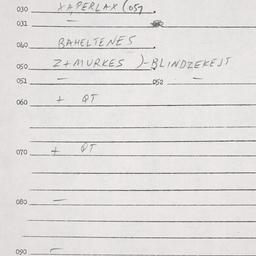 030 XAPERLAX (057.
031 —
040 BAHELTENES.
050 Z+MURKES )-BLINDZEKEJT
051 — 052 —
060 + QT
070 + QT
080 —
090 —